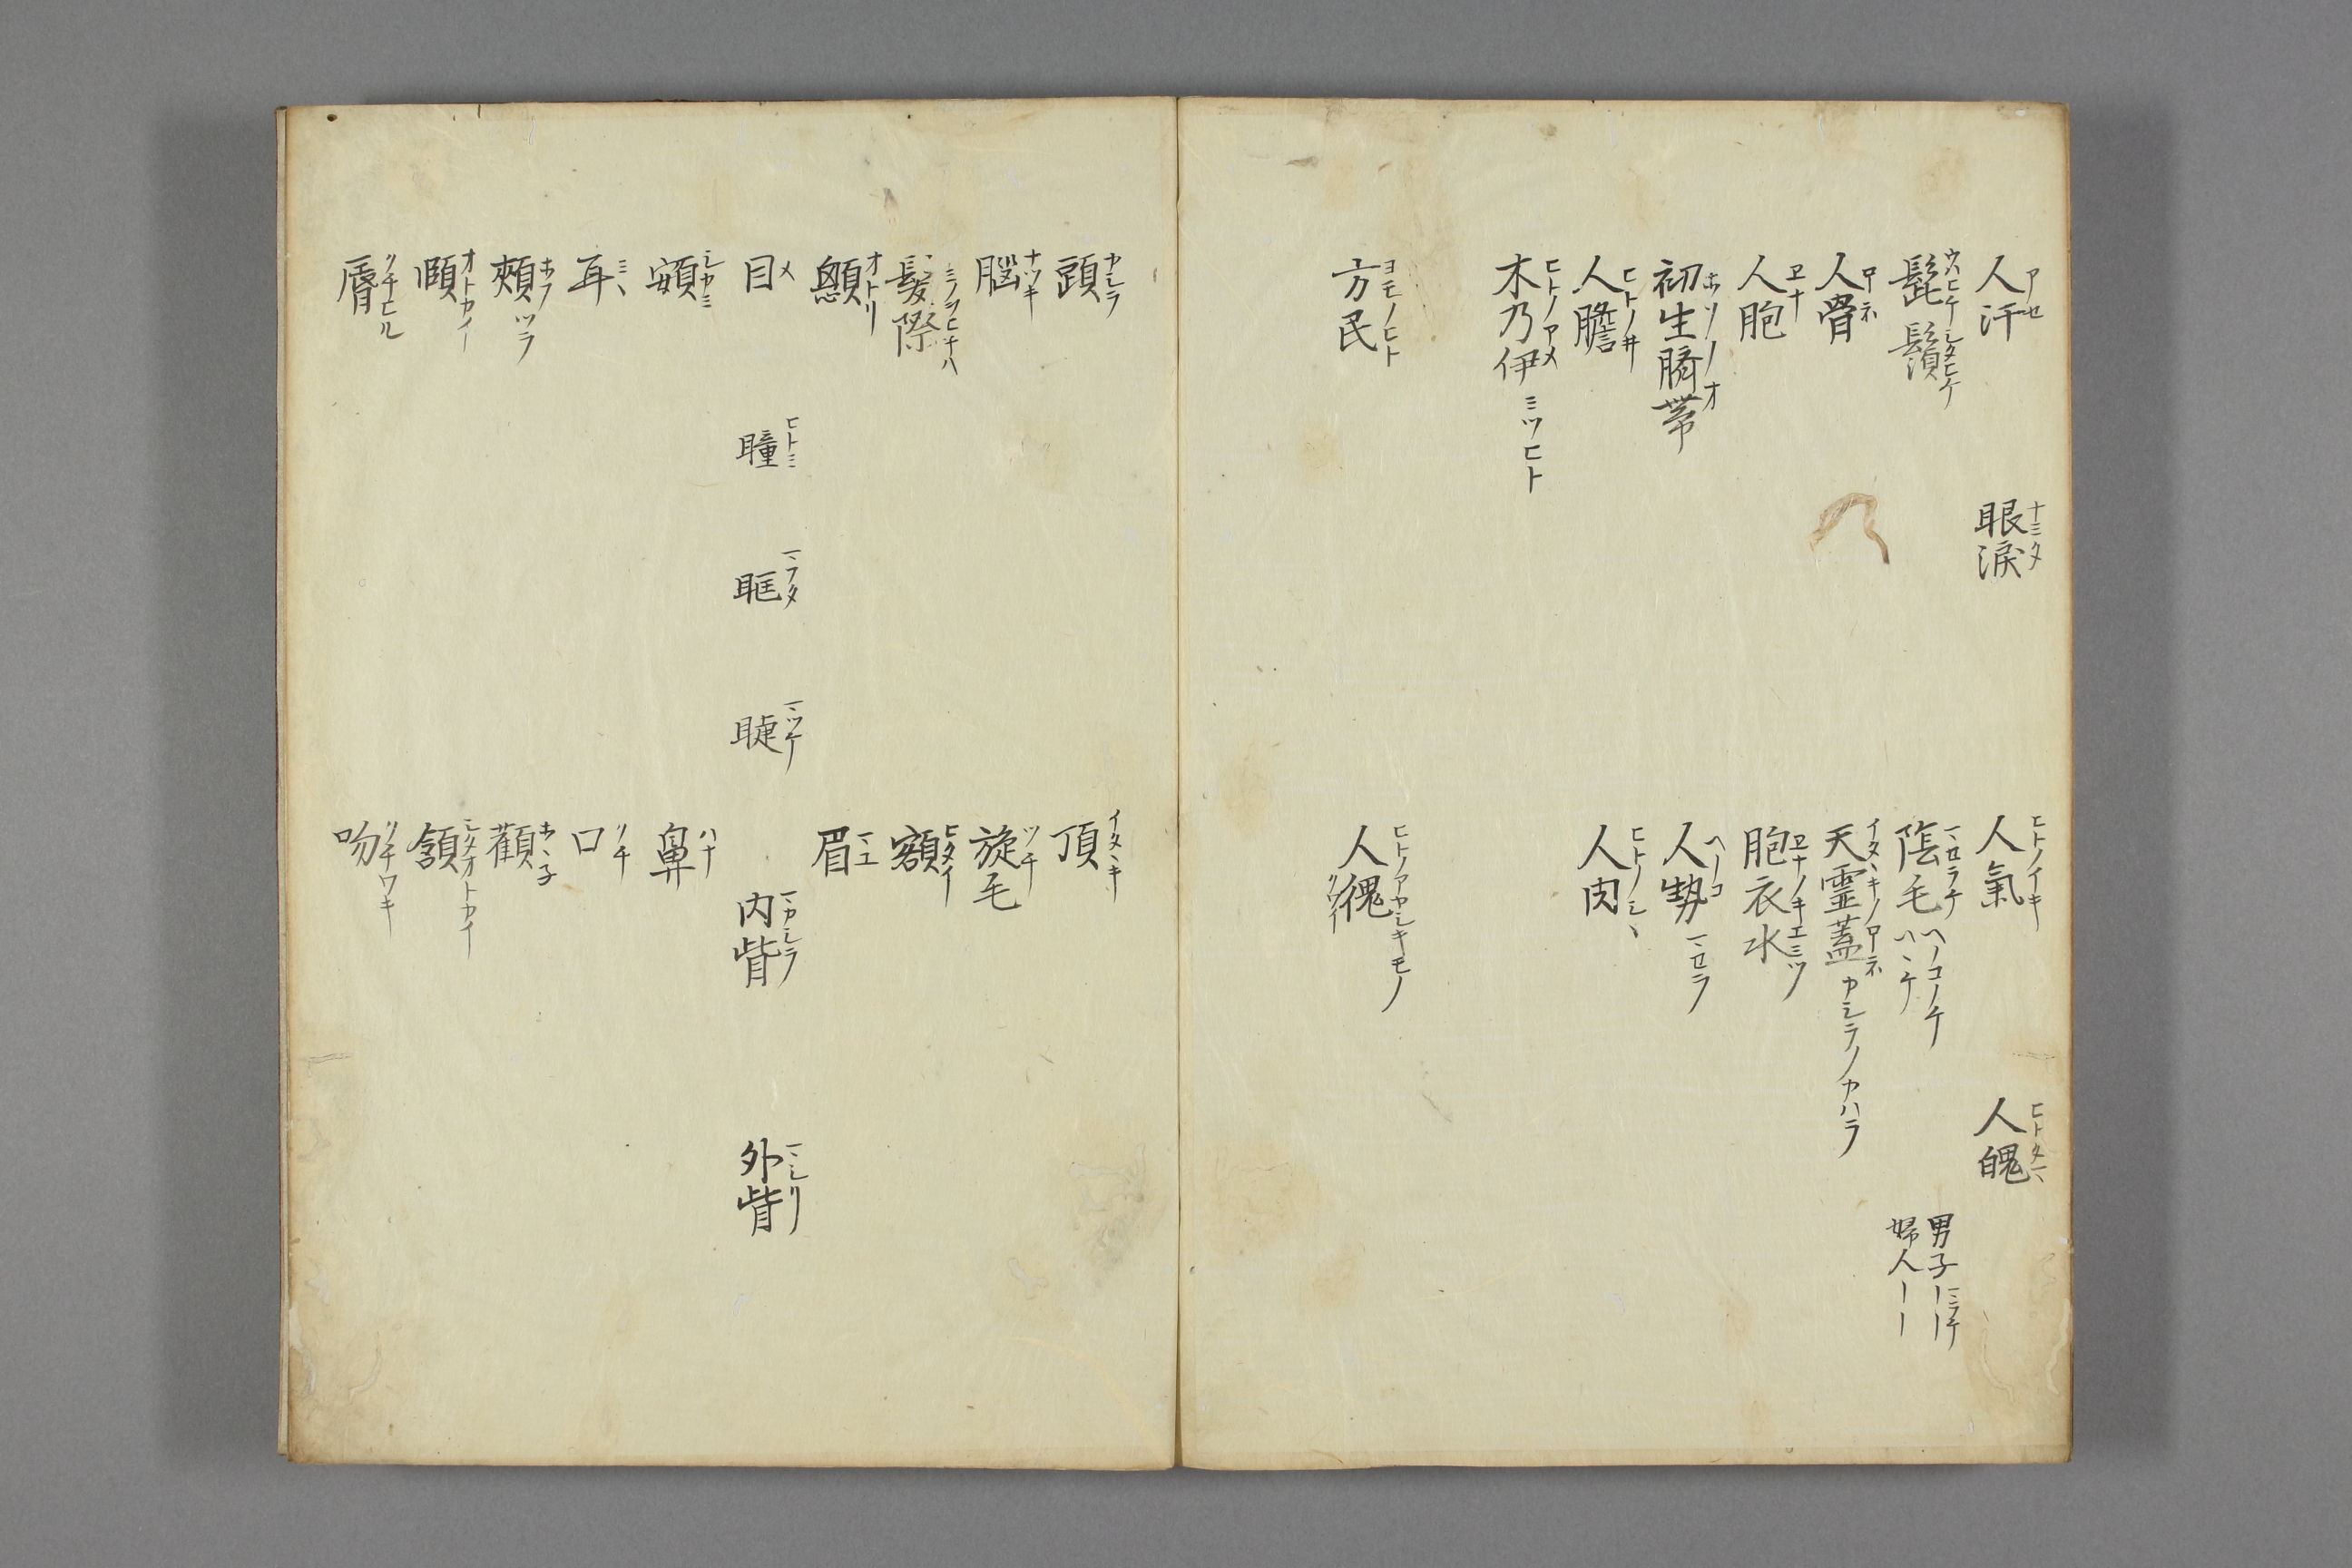 人汗 アセ
眼涙 ナミタ
人氣 ヒトノイキ
人魄 ヒトタマ
髭 ウハヒケ
鬚 シタヒケ
陰毛 ヘノコノケ
男子ーー
婦人ーー
人骨 ホネ
天靈蓋 イタヽキノホネ カシラノカハラ
人胞 ヱナ
胞衣水 ヱナノキエミツ
初生臍帯 ホソノオ
人勢 ヘノコ マラ
人膽 ヒトノヰ
人肉 ヒトノシヽ
木乃伊 ヒトノアメ ミツヒト
方民 ヨモノヒト
人傀 ヒトノアヤシキモノ
頭 カシラ
頂 イタヽキ
腦 ナツキ
旋毛 ツチ
髮際
額 ヒタイ
顖 オトリ
眉 マユ
目 メ
瞳 ヒトミ
眶 マフタ
睫 マツケ
内眥 マカシラ
外眥 マシリ
頞 シカミ
鼻 ハナ
耳 ミヽ
口 クチ
頰 ホフ ツラ
顴
頤 オトカイ
頷 シタオトカイ
脣 クチヒル
吻 クチワキ